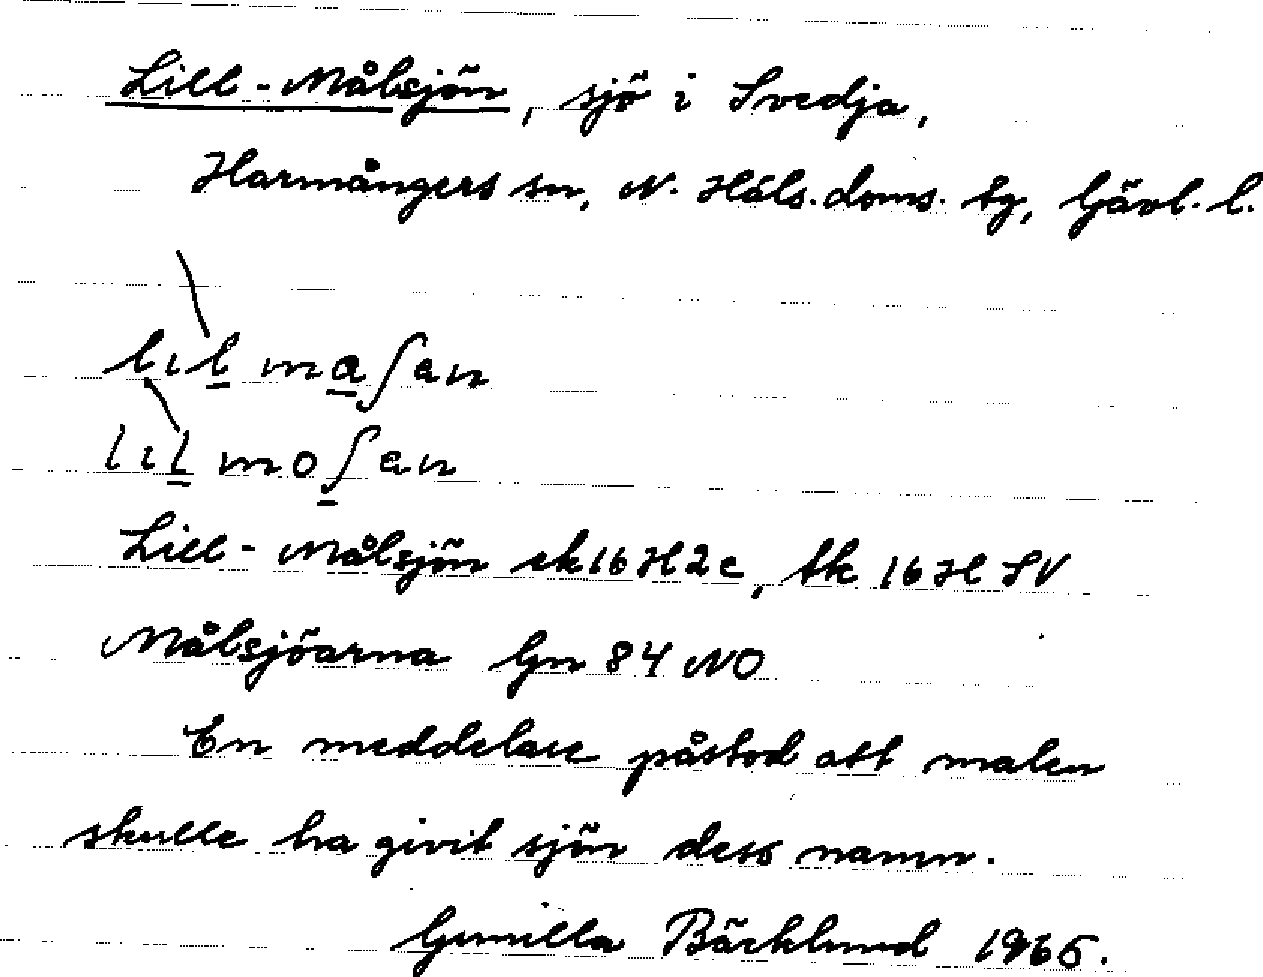 Lill-Målsjön, sjö i Svedja,
Harmångers sn, N. Häls. doms. tg, Gävl. l.
lıl maʃen
lıl moʃen
Lill-Målsjön ek 16H2c, tk 16H SV
Målsjöarna Gn 84 NO
En meddelare påstod att malen
skulle ha givit sjön dess namn.
Gunilla Bäcklund 1965.